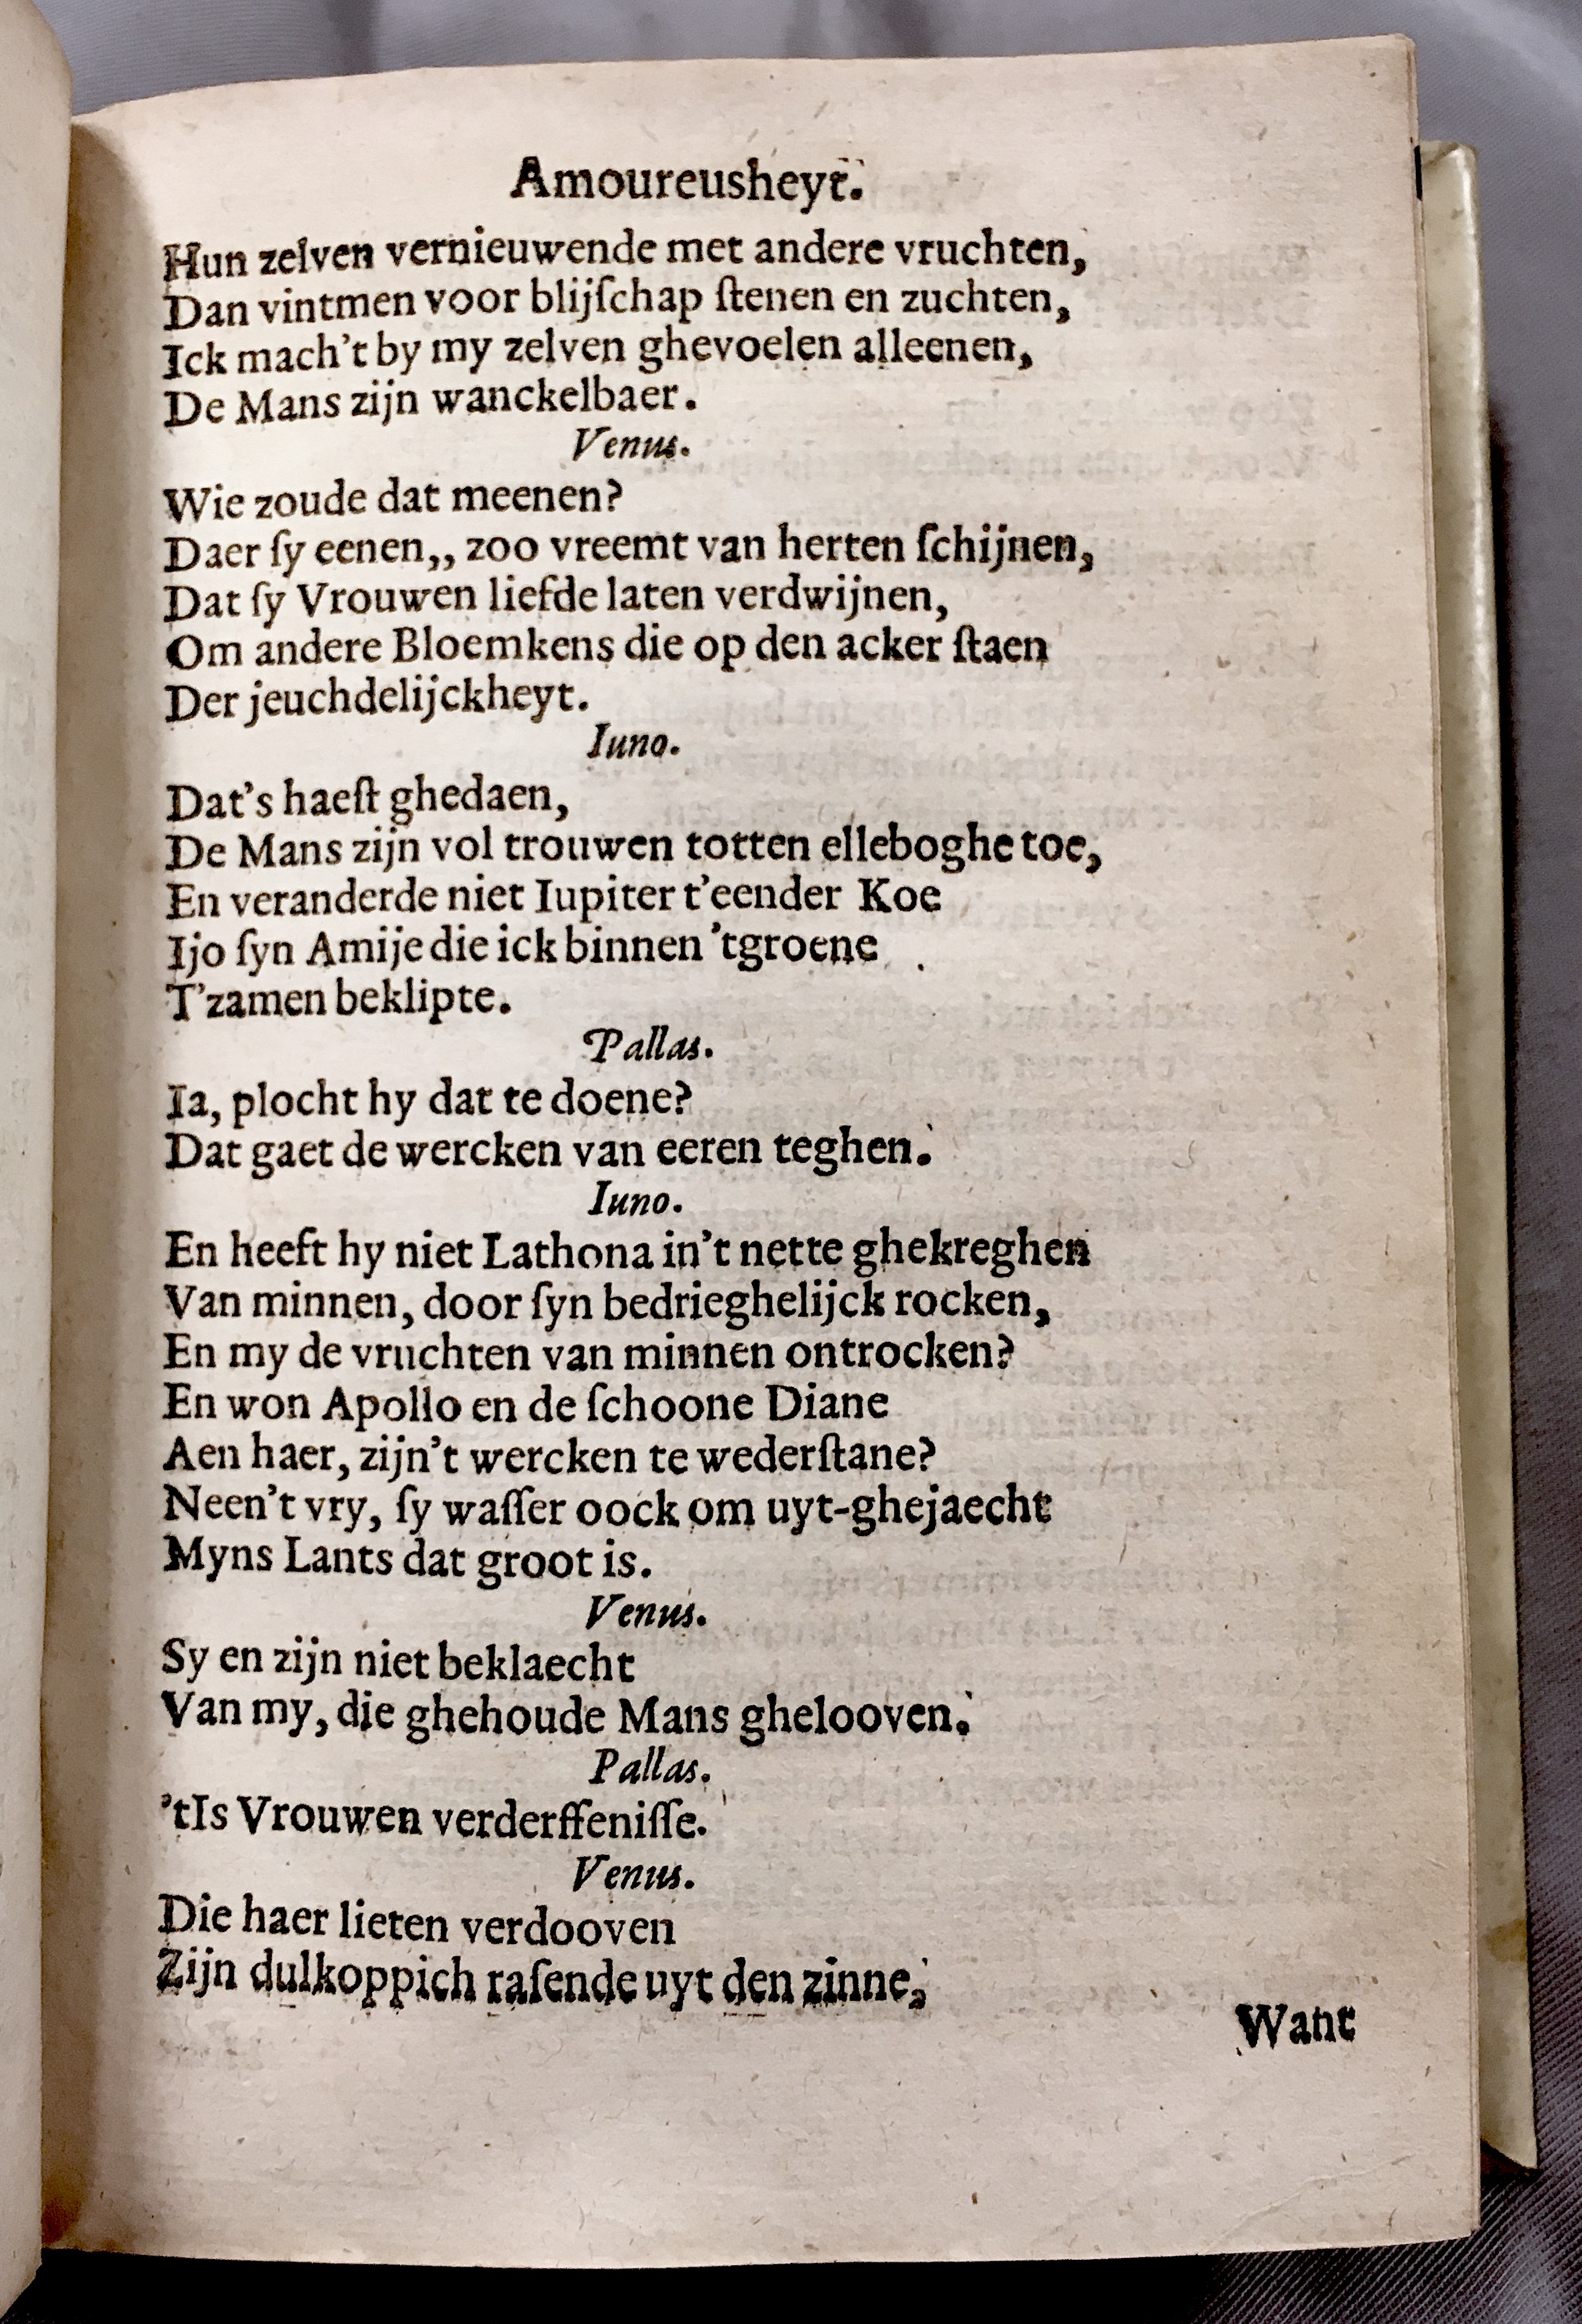 Amoureusheyt.
Hun zelven vernieuwende met andere vruchten,
Dan vintmen voor blijſchap ſtenen en zuchten,
Ick mach't by my zelven ghevoelen alleenen,
De Mans zijn wanckelbaer.
Venus.
Wie zoude dat meenen?
Daer ſy eenen,, zoo vreemt van herten ſchijnen,
Dat ſy Vrouwen liefde laten verdwijnen,
Om andere Bloemkens die op den acker ſtaen
Der jeuchdelijckheyt.
Iuno.
Dat's haeſt ghedaen,
De Mans zijn vol trouwen totten elleboghe toe,
En veranderde niet Iupiter t'eender Koe
Ijo ſyn Amije die ick binnen 'tgroene
T'zamen beklipte.
Pallas.
Ia, plocht hy dat te doene?
Dat gaet de wercken van eeren teghen.
Iuno.
En heeft hy niet Lathona in't nette ghekreghen
Van minnen, door ſyn bedrieghelijck rocken,
En my de vruchten van minnen ontrocken?
En won Apollo en de ſchoone Diane
Aen haer, zijn't wercken te wederſtane?
Neen't vry, ſy waſſer oock om uyt-ghejaecht
Myns Lants dat groot is.
Venus.
Sy en zijn niet beklaecht
Van my, die ghehoude Mans ghelooven.
Pallas.
'tIs Vrouwen verderffeniſſe.
Venus.
Die haer lieten verdooven
Zijn dulkoppich raſende uyt den zinne,
Want